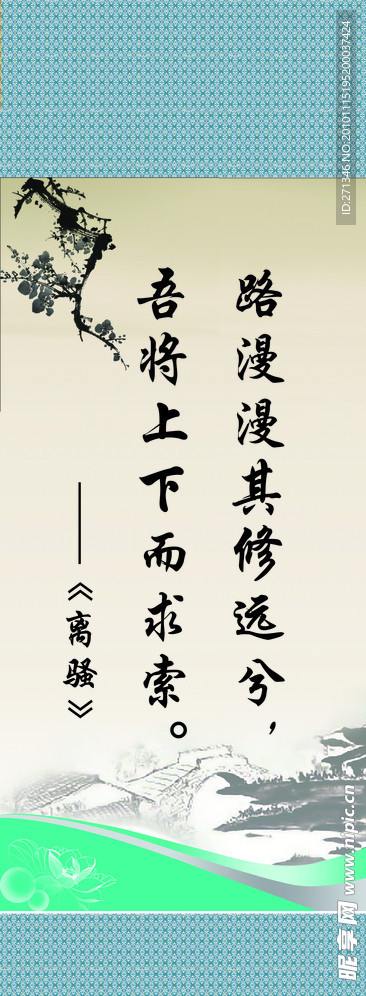 路漫漫其修远兮，
吾将上下而求索。
——《离骚》
ID:271346 NO:20101115195200037424
昵享网 www.nipic.cn